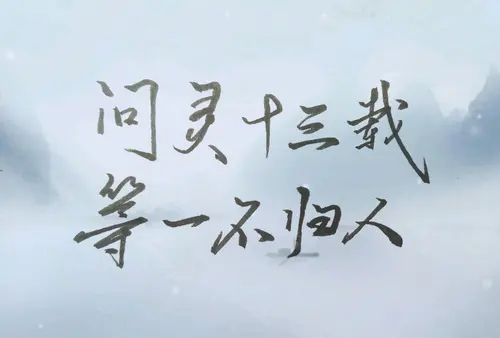 问灵十三载
等一不归人